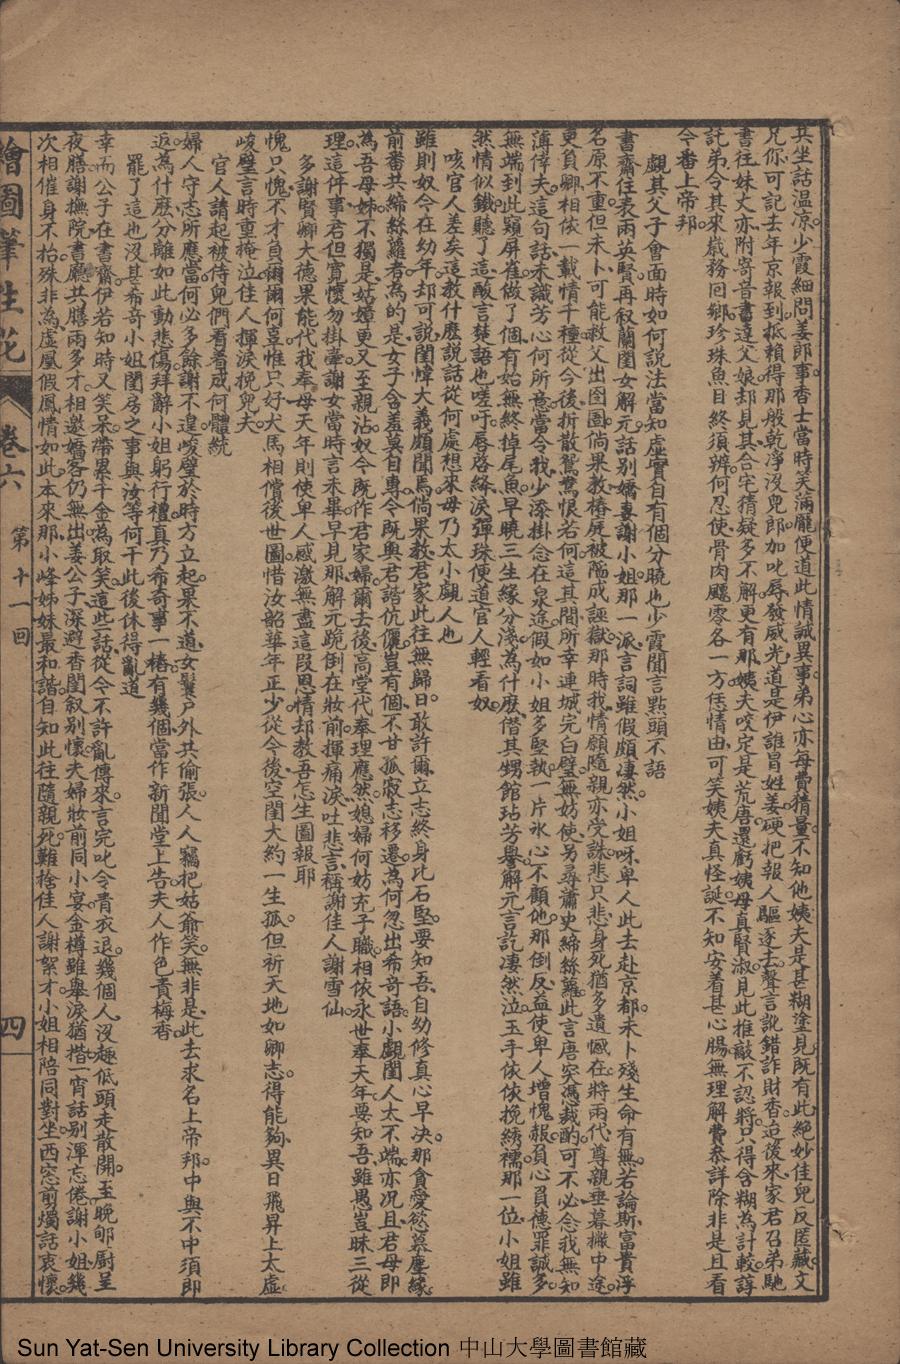 共坐話溫凉。少霞細問姜郎事。香士當時笑滿龐。便道此情誠異事。弟心亦每費精量。不知他姨夫是甚糊塗見。既有此絕妙佳兒反匿藏。文
兄你可記去年京報到。抵賴得那般乾淨沒兒郎。加叱辱。發威光。道是伊誰冒姓姜。硬把報人驅逐去。聲言訛錯詐財香。迨後來家君召弟馳
書往。妹丈亦附寄音書達父娘。却見其合宅猜疑多不解。更有那姨夫咬定是荒唐。還虧姨母真賢淑。見此推敲不認將。只得含糊為計較。諄
託弟令其來歲務回鄉。珍珠魚目終須辨。何忍使骨肉飄零各一方。恁情由。可笑姨夫真怪誕。不知安着甚心腸。無理解。費叅詳。除非是且看
今番上帝邦。
覷其父子會面時如何說法當知虛實自有個分曉也少霞聞言點頭不語
書齋住表兩英賢。再叙蘭閨女解元。話別嬌妻謝小姐。那一派言詞雖假頗凄然。小姐呀卑人此去赴京都。未卜殘生命有無。若論斯富貴浮
名原不重。但未卜可能救父出囹圄。倘果教椿庭被陷成誣獄。那時我情願隨親亦受誅。悲只悲身死猶多遺憾在。將兩代尊親垂暮撇中途。
更負卿相依一載情千種。從今後折散鴛鴦恨若何。這其間所幸連城完白璧。無妨使另尋蕭史締絲蘿。此言唐突憑裁酌。可不必念我無知
薄倖夫。這句話未識芳心何所意。當令我少添掛念在泉途。假如小姐多堅執。一片氷心不顧他。那倒反益使卑人增愧赧。負心負德罪誠多。
無端到此窺屏雀。做了個有始無終掉尾魚。早曉三生緣分淺。為什麽僭其甥館玷芳譽。解元言訖凄然泣。玉手依依挽綉襦。那一位小姐雖
然情似鐵。聽了這酸言楚語也嗟吁。唇啓絳。淚彈珠。便道官人輕看奴。
咳官人差矣這教什麽說話從何處想來毋乃太小覷人也
雖則奴今在幼年。却可說閨幃大義頗聞焉。倘果教君家此往無歸日。敢許爾立志終身比石堅。要知吾自幼修真心早决。那貪愛慾慕塵緣。
前番共締絲蘿者。為的是女子含羞莫自專。今既與君諧伉儷。豈有個不甘孤寂志移遷。為何忽出希奇語。小覷閨人太不端。亦况且君母即
為吾母姊。不獨是姑嫜更又至親沾。奴今既作君家婦。爾去後高堂代奉理應然。媳婦何妨充子職。相依永世奉天年。要知吾雖愚豈昧三從
理。這件事君但寬懷勿掛牽。謝女當時言未畢。早見那解元跪倒在妝前。揮痛淚。吐悲言。稱謝佳人謝雪仙。
多謝賢卿大德果能代我奉母天年則使卑人感激無盡這段恩情却教吾怎生圖報耶
愧只愧不才負爾爾何辜。惟只好犬馬相償後世圖。惜汝韶華年正少。從今後空閨大約一生孤。但祈天地如卿志。得能夠異日飛昇上太虛。
峻璧言時重掩泣。佳人揮淚挽兒夫。
官人請起被侍兒們看着成何體統
婦人守志所應當。何必多餘謝不遑。峻璧於時方立起。果不道女鬟戶外共偷張。人人竊把姑爺笑。無非是此去求名上帝邦。中與不中須即
返。為什麽分離如此動悲傷。拜辭小姐躬行禮。真乃希奇事一樁。有幾個當作新聞堂上告。夫人作色責梅香。
罷了這也沒甚希奇小姐閨房之事與汝等何干此後休得亂道
幸而公子在書齋。伊若知時又笑呆。帶累千金為取笑。這些話從今不許亂傳來。言完叱令青衣退。幾個人沒趣低頭走散開。至晚郇廚呈
夜膳。謝撫院書廳共膳兩多才。相邀嬌客仍無出。姜公子深避香閨叙別懷。夫婦妝前同小宴。金樽雖舉淚猶揩。一宵話別渾忘倦。謝小姐幾
次相催身不抬。殊非為虛凰假鳳情如此。本來那小峰姊妹最和諧。自知此往隨親死。難捨佳人謝絮才。小姐相陪同對坐。西窓剪燭話衷懷。
繪圖筆生花
卷六
第十一回
四
Sun Yat-Sen University Library Collection 中山大學圖書館藏